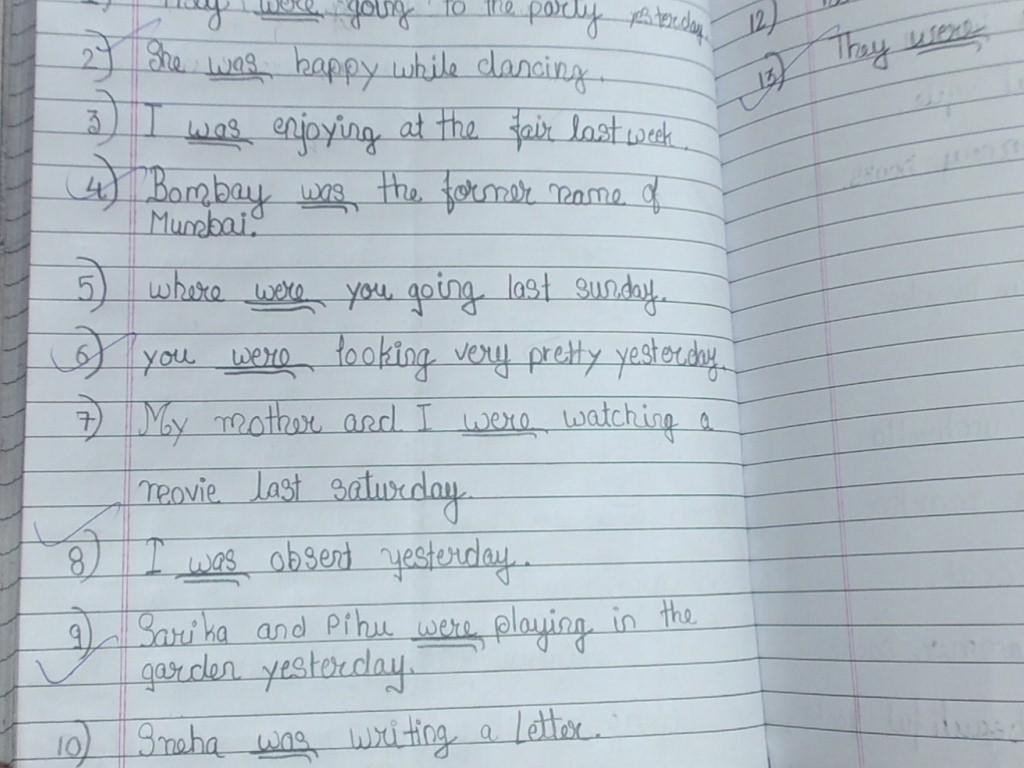 They were going to the party yesterday.
2) She was happy while dancing.
3) I was enjoying at the fair last week.
4) Bombay was the former name of
Mumbai.
5) where were you going last sunday.
6) you were looking very pretty yesterday.
7) My mother and I were watching a
movie last saturday.
8) I was absent yesterday.
9) Sarika and Pihu were playing in the
garden yesterday.
10) Sneha was writing a letter.
12)
13) They were